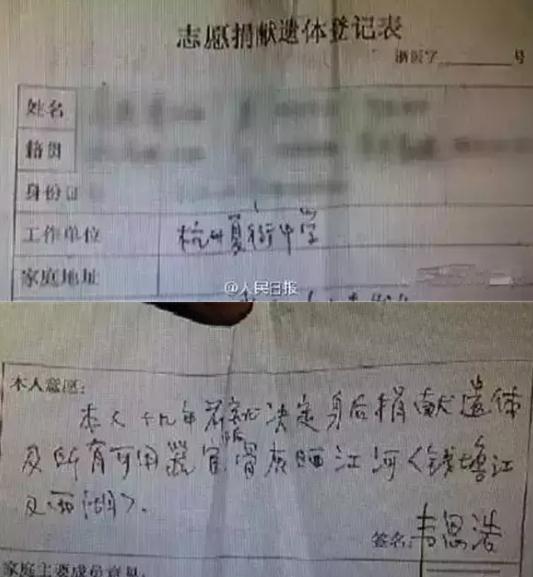 志愿捐献遗体登记表
浙医字 号
姓名
籍贯
身份证
工作单位 杭州夏衍中学
家庭地址
@人民日报
本人意愿:
本人十九年前就决定身后捐献遗体
及所有可用器官,骨灰洒江河(钱塘江
及西湖)。
签名:韦思浩
家庭主要成员意见: